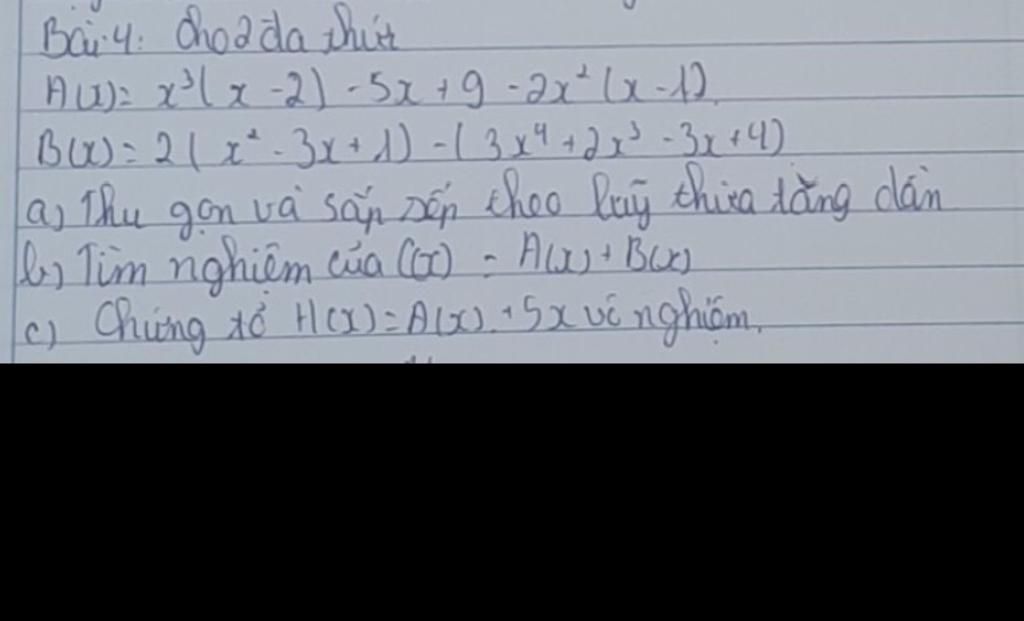 Bài 4: Cho 2 đa thức
A(x) = x³(x - 2) - 5x + 9 - 2x²(x - 1)
B(x) = 2(x² - 3x + 1) - (3x⁴ + 2x³ - 3x + 4)
a) Thu gọn và sắp xếp theo luỹ thừa tăng dần
b) Tìm nghiệm của C(x) = A(x) + B(x)
c) Chứng tỏ H(x) = A(x) + 5x vô nghiệm.